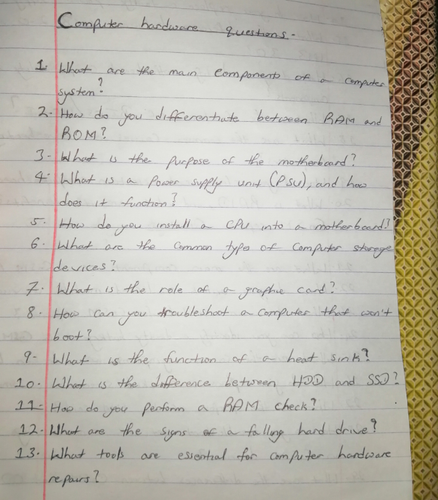 Computer hardware questions.
1. What are the main components of a computer
system?
2. How do you differentiate between RAM and
ROM?
3- What is the purpose of the motherboard?
4- What is a Power supply unit (PSU), and how
does it function?
5. How do you install a CPU into a motherboard?
6. What are the common types of computer storage
devices?
7. What is the role of a graphic card?
8. How can you troubleshoot a computer that won't
boot?
9- What is the function of a heat sink?
10. What is the difference between HDD and SSD?
11- How do you perform a RAM check?
12. What are the signs of a falling hard drive?
13. What tools are essential for computer hardware
repairs?